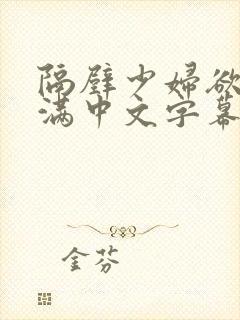 隔壁少婦欲
满中文字幕
金芬